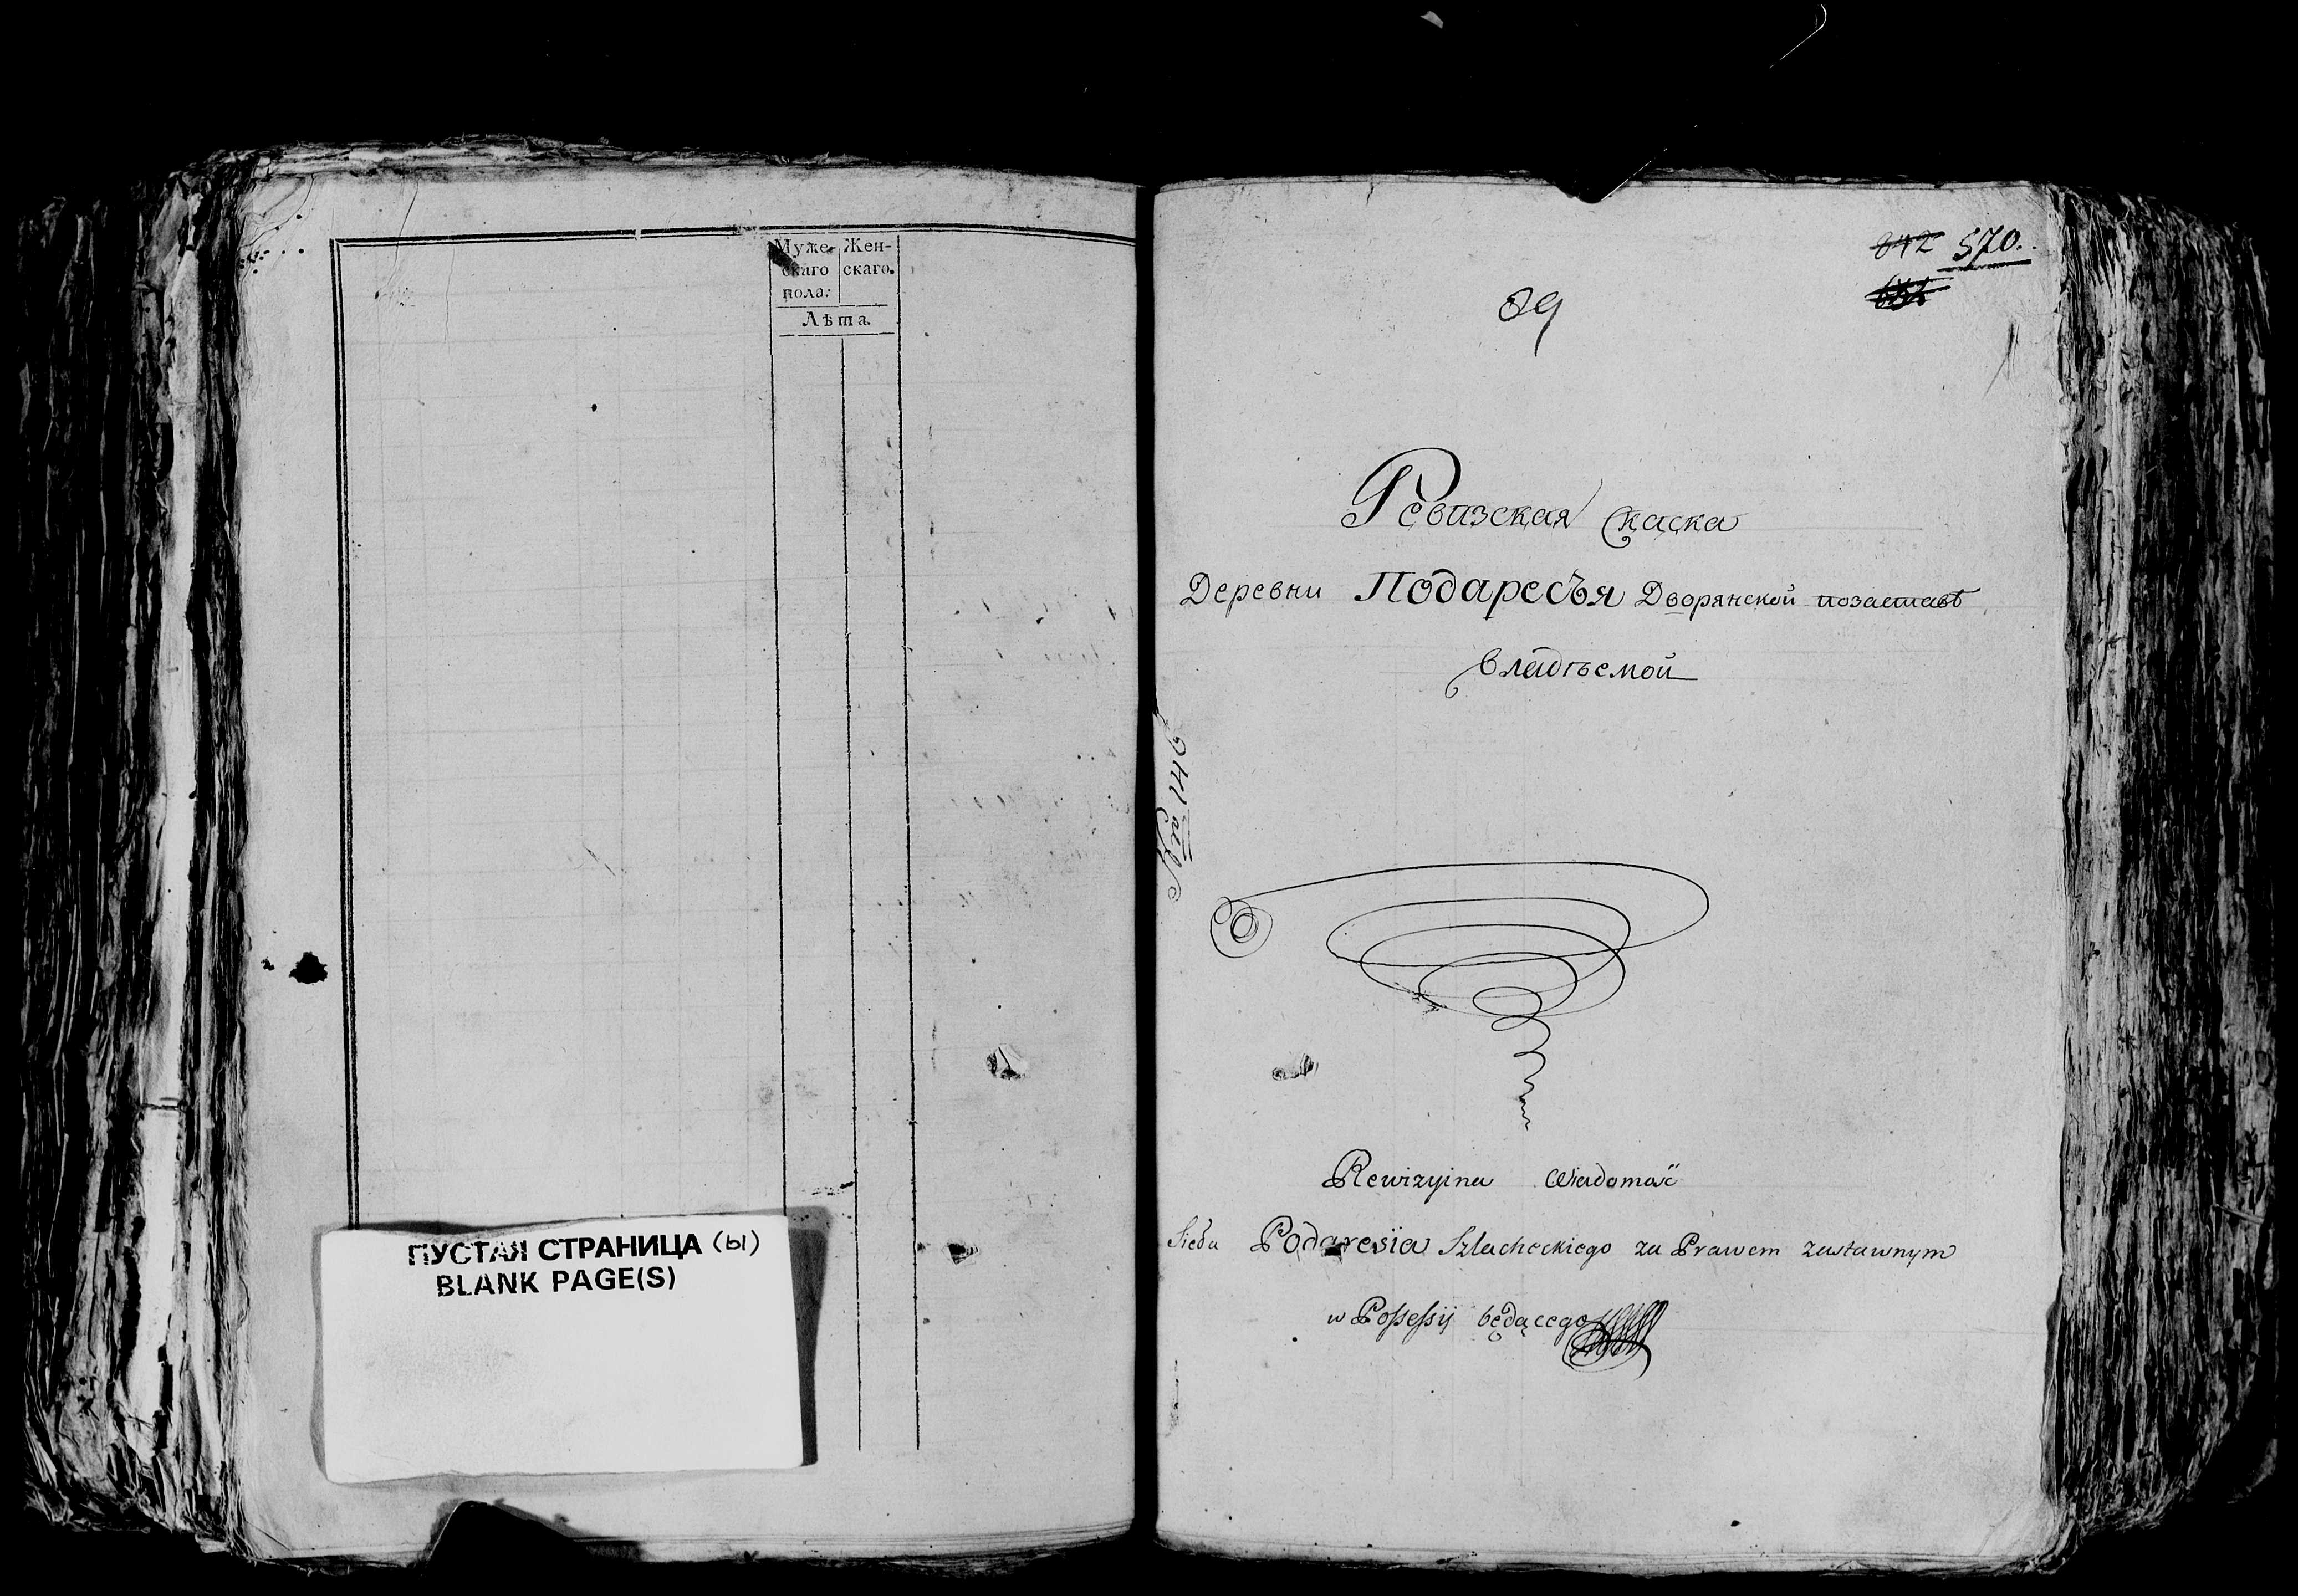 Муже-
скаго
пола.
Жен-
скаго.
Лѣта.
ПУСТАЯ СТРАНИЦА (Ы)
BLANK PAGE(S)
842 570.
89
Ревизская скаска
Деревни Подаресья Дворянской позаставѣ
владѣемой
Rewizyina Wiadomość
Sieła Podaresia Szlacheckiego za Prawem zastawnym
w Possessij będącego